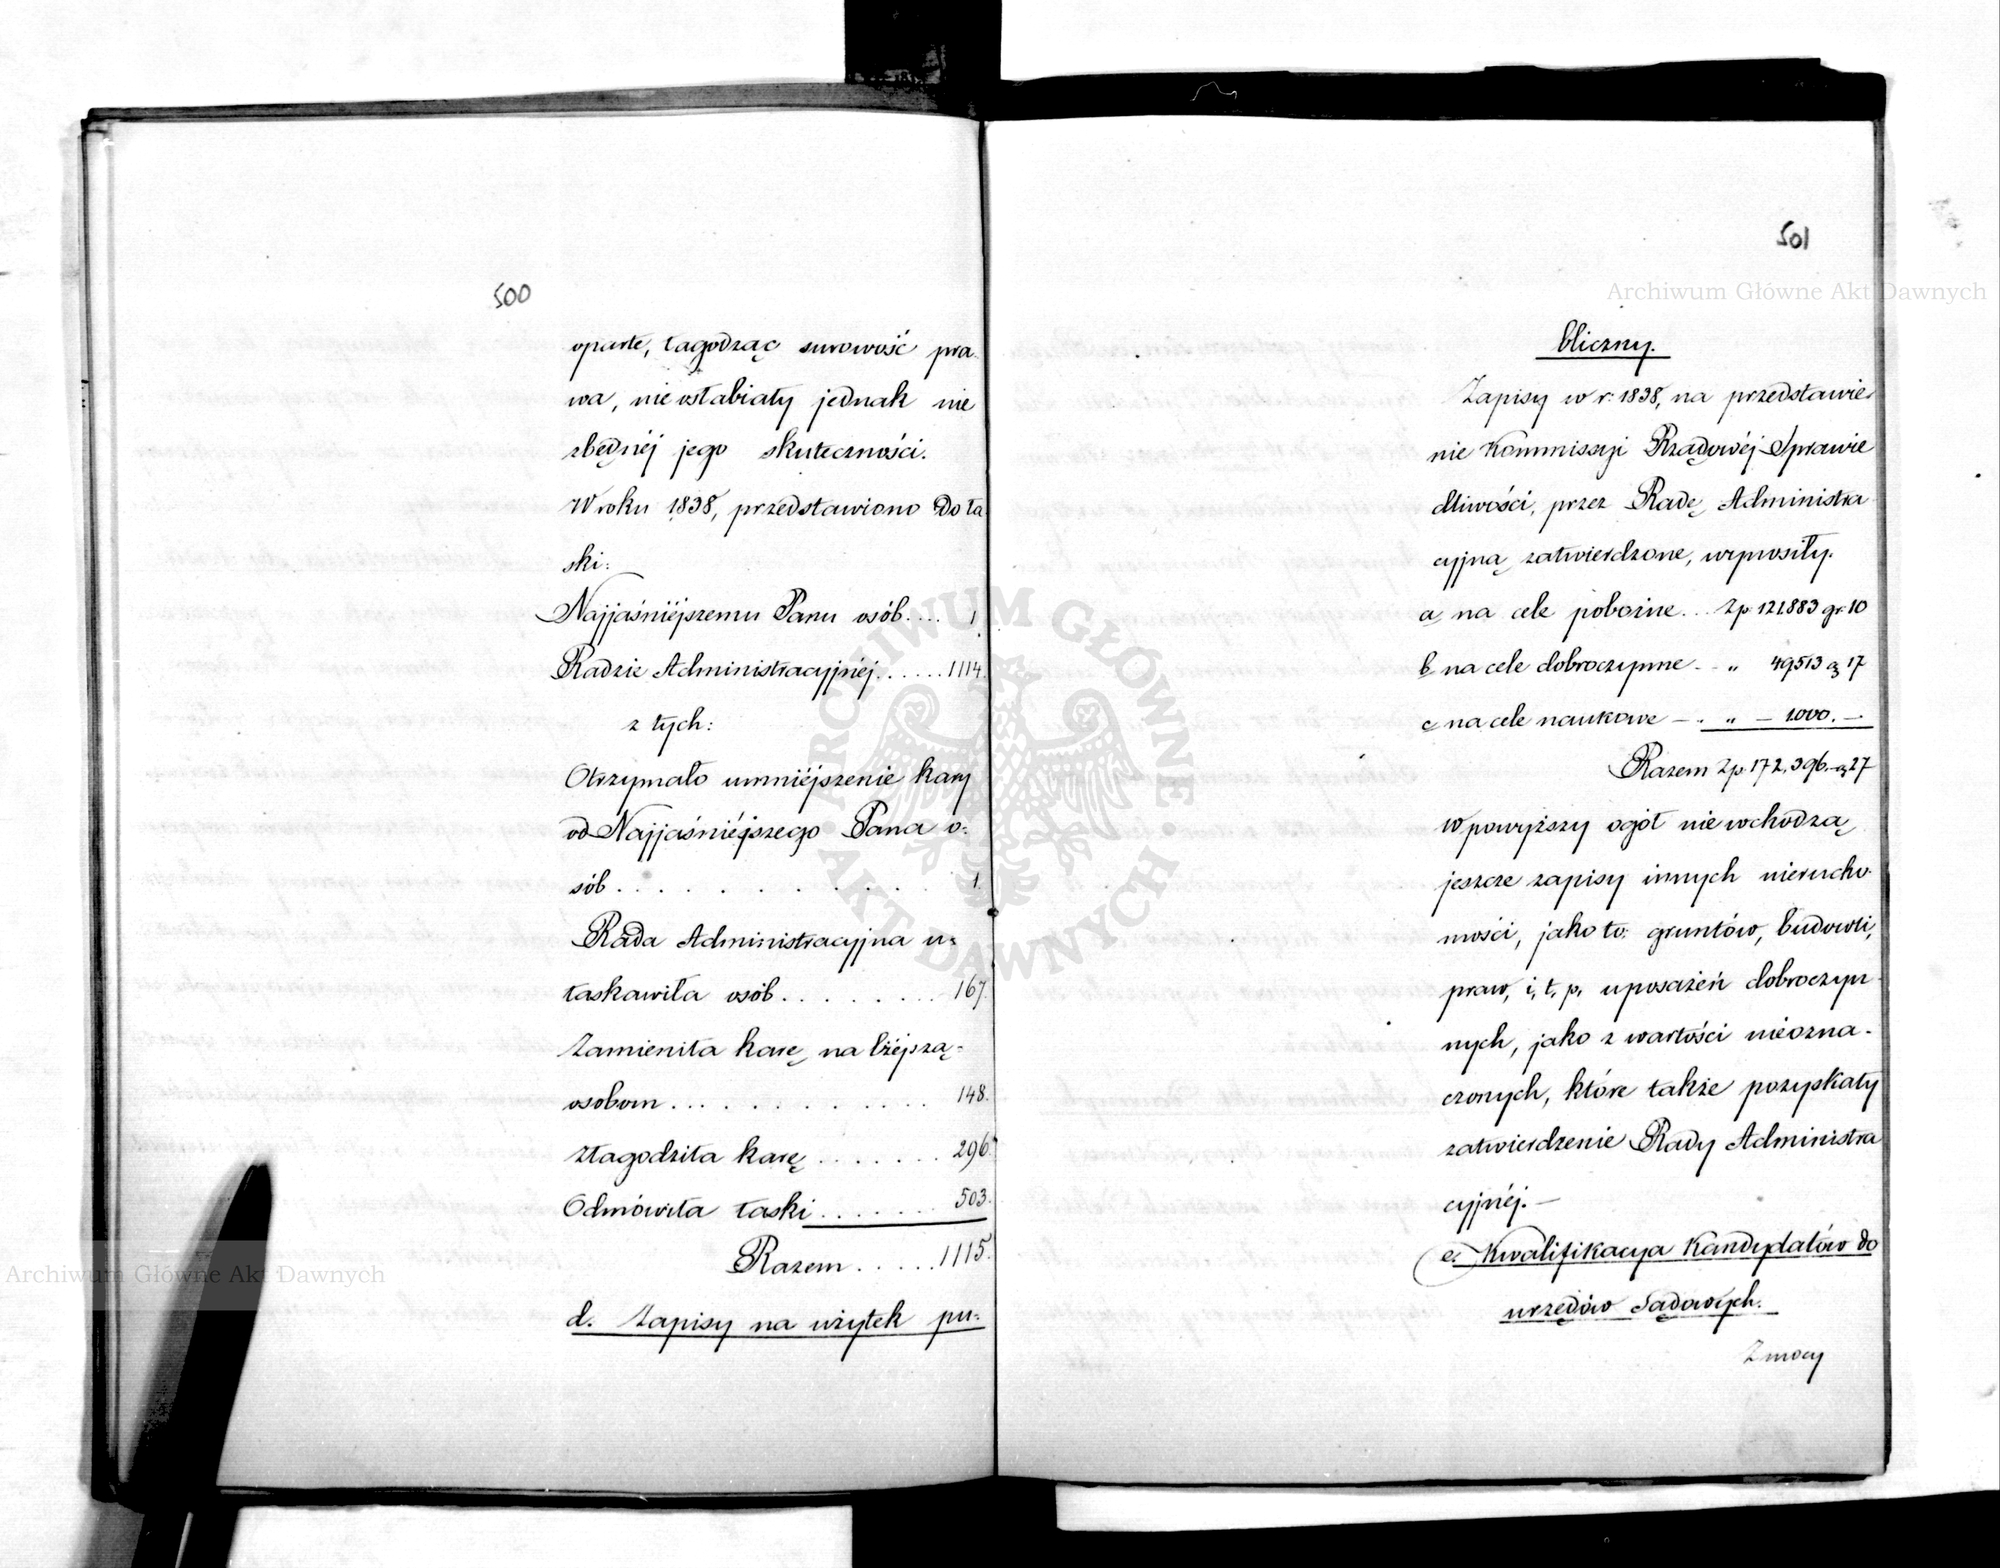 500
oparte, łagodząc surowość pra-
wa, nie osłabiały jednak nie
zbędnéj jego skuteczności.
W roku 1838, przedstawiono do ła
ski:
Najjaśniéjszemu Panu osób.... 1
Radzie Administracyjnéj......1114.
z tych:
Otrzymało umniéjszenie kary
od Najjaśniéjszego Pana o-
sób . . . . . . . . . . . . 1.
Rada Administracyjna u-
łaskawiła osób . . . . . . . . 167.
Zamieniła karę na lżéjszą-
osobom . . . . . . . . . . . 148.
Złagodziła karę . . . . . . . 296.
Odmówiła łaski . . . . . . . 503.
Razem . . . . . 1115.
d. Zapisy na użytek pu-
501
bliczny.
Zapisy w r. 1838, na przedstawie-
nie Kommissyi Rządowéj Sprawie
dliwości, przez Radę Administra-
cyjną zatwierdzone, wynosiły.
a, na cele pobożne... Zp. 121883 gr. 10
b na cele dobroczynne - . „ 49513 „ 17
c na cele naukowe — . „ — 1000. —
Razem Zp. 172,396. „ 27
W powyższy ogół nie wchodzą
jeszcze zapisy innych nierucho-
mości, jako to: gruntów, budowli,
praw, i, t, p, uposażeń dobroczyn-
nych, jako z wartości nieozna-
czonych, które także pozyskały
zatwierdzenie Rady Administra
cyjnéj. —
e. Kwalifikacya Kandydatów do
urzędów Sądowych.
Z mocy
Archiwum Główne Akt Dawnych
Archiwum Główne Akt Dawnych
ARCHIWUM GŁÓWNE · AKT DAWNYCH ·